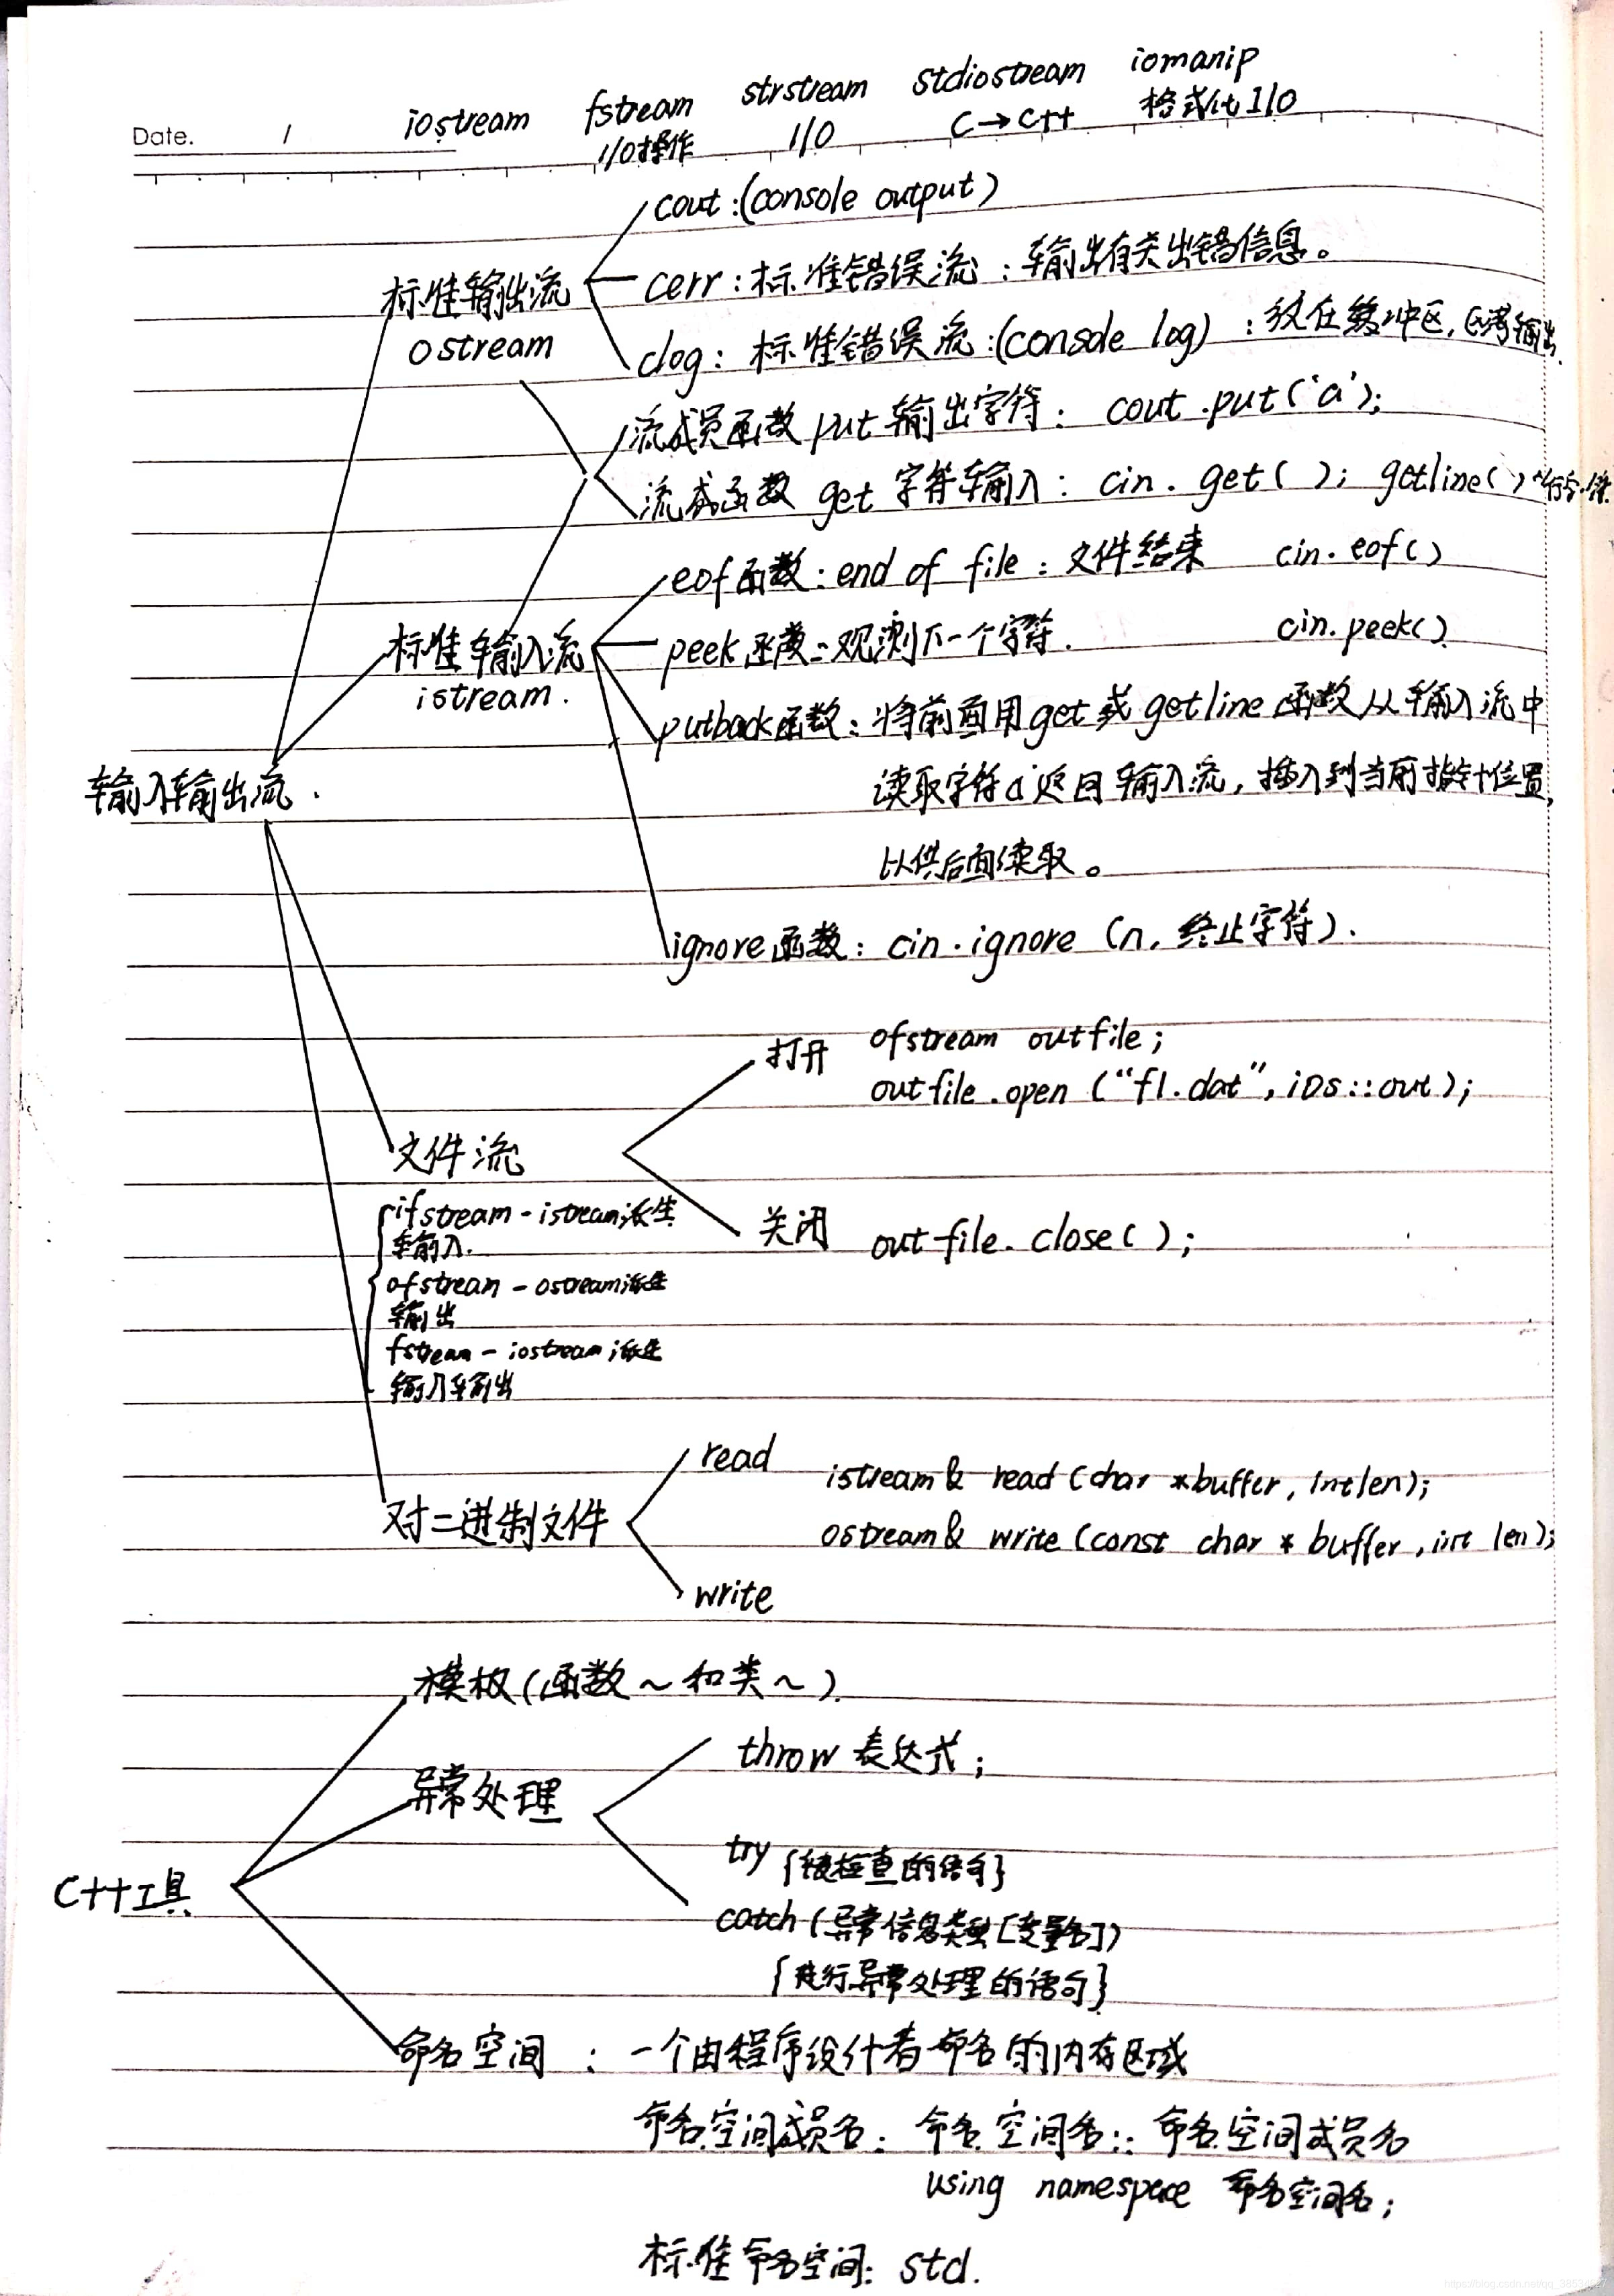 iostream fstream strstream stdiostream iomanip
Date. / I/O操作 I/O C→C++ 格式化I/O
cout:(console output)
标准输出流 cerr:标准错误流:输出有关出错信息。
ostream clog:标准错误流:(console log):放在缓冲区,
流成员函数put输出字符: cout.put('a');
流成函数 get 字符输入: cin.get( ); getline( )
eof函数:end of file:文件结束 cin.eof()
标准输入流 peek函数:观测下一个字符. cin.peek()
istream. putback函数:将前面用get或getline函数从输入流中
输入输出流. 读取字符a返回输入流,插入到当前指针位置,
以供后面读取。
ignore函数: cin.ignore (n,终止字符).
打开 ofstream outfile;
outfile.open ("f1.dat",ios::out);
文件流
ifstream-istream派生 关闭 outfile.close( );
输入.
ofstream-ostream派生
输出
fstream-iostream派生
输入输出
read istream& read (char *buffer, int len);
对二进制文件 ostream& write (const char * buffer,int len);
write
模板(函数~和类~).
throw 表达式;
异常处理
try {被检查的语句}
C++工具
catch(异常信息类型[变量名])
{进行异常处理的语句}
命名空间 : 一个由程序设计者命名的内存区域
命名空间成员名: 命名空间名::命名空间成员名
using namespace 命名空间名;
标准命名空间: std.